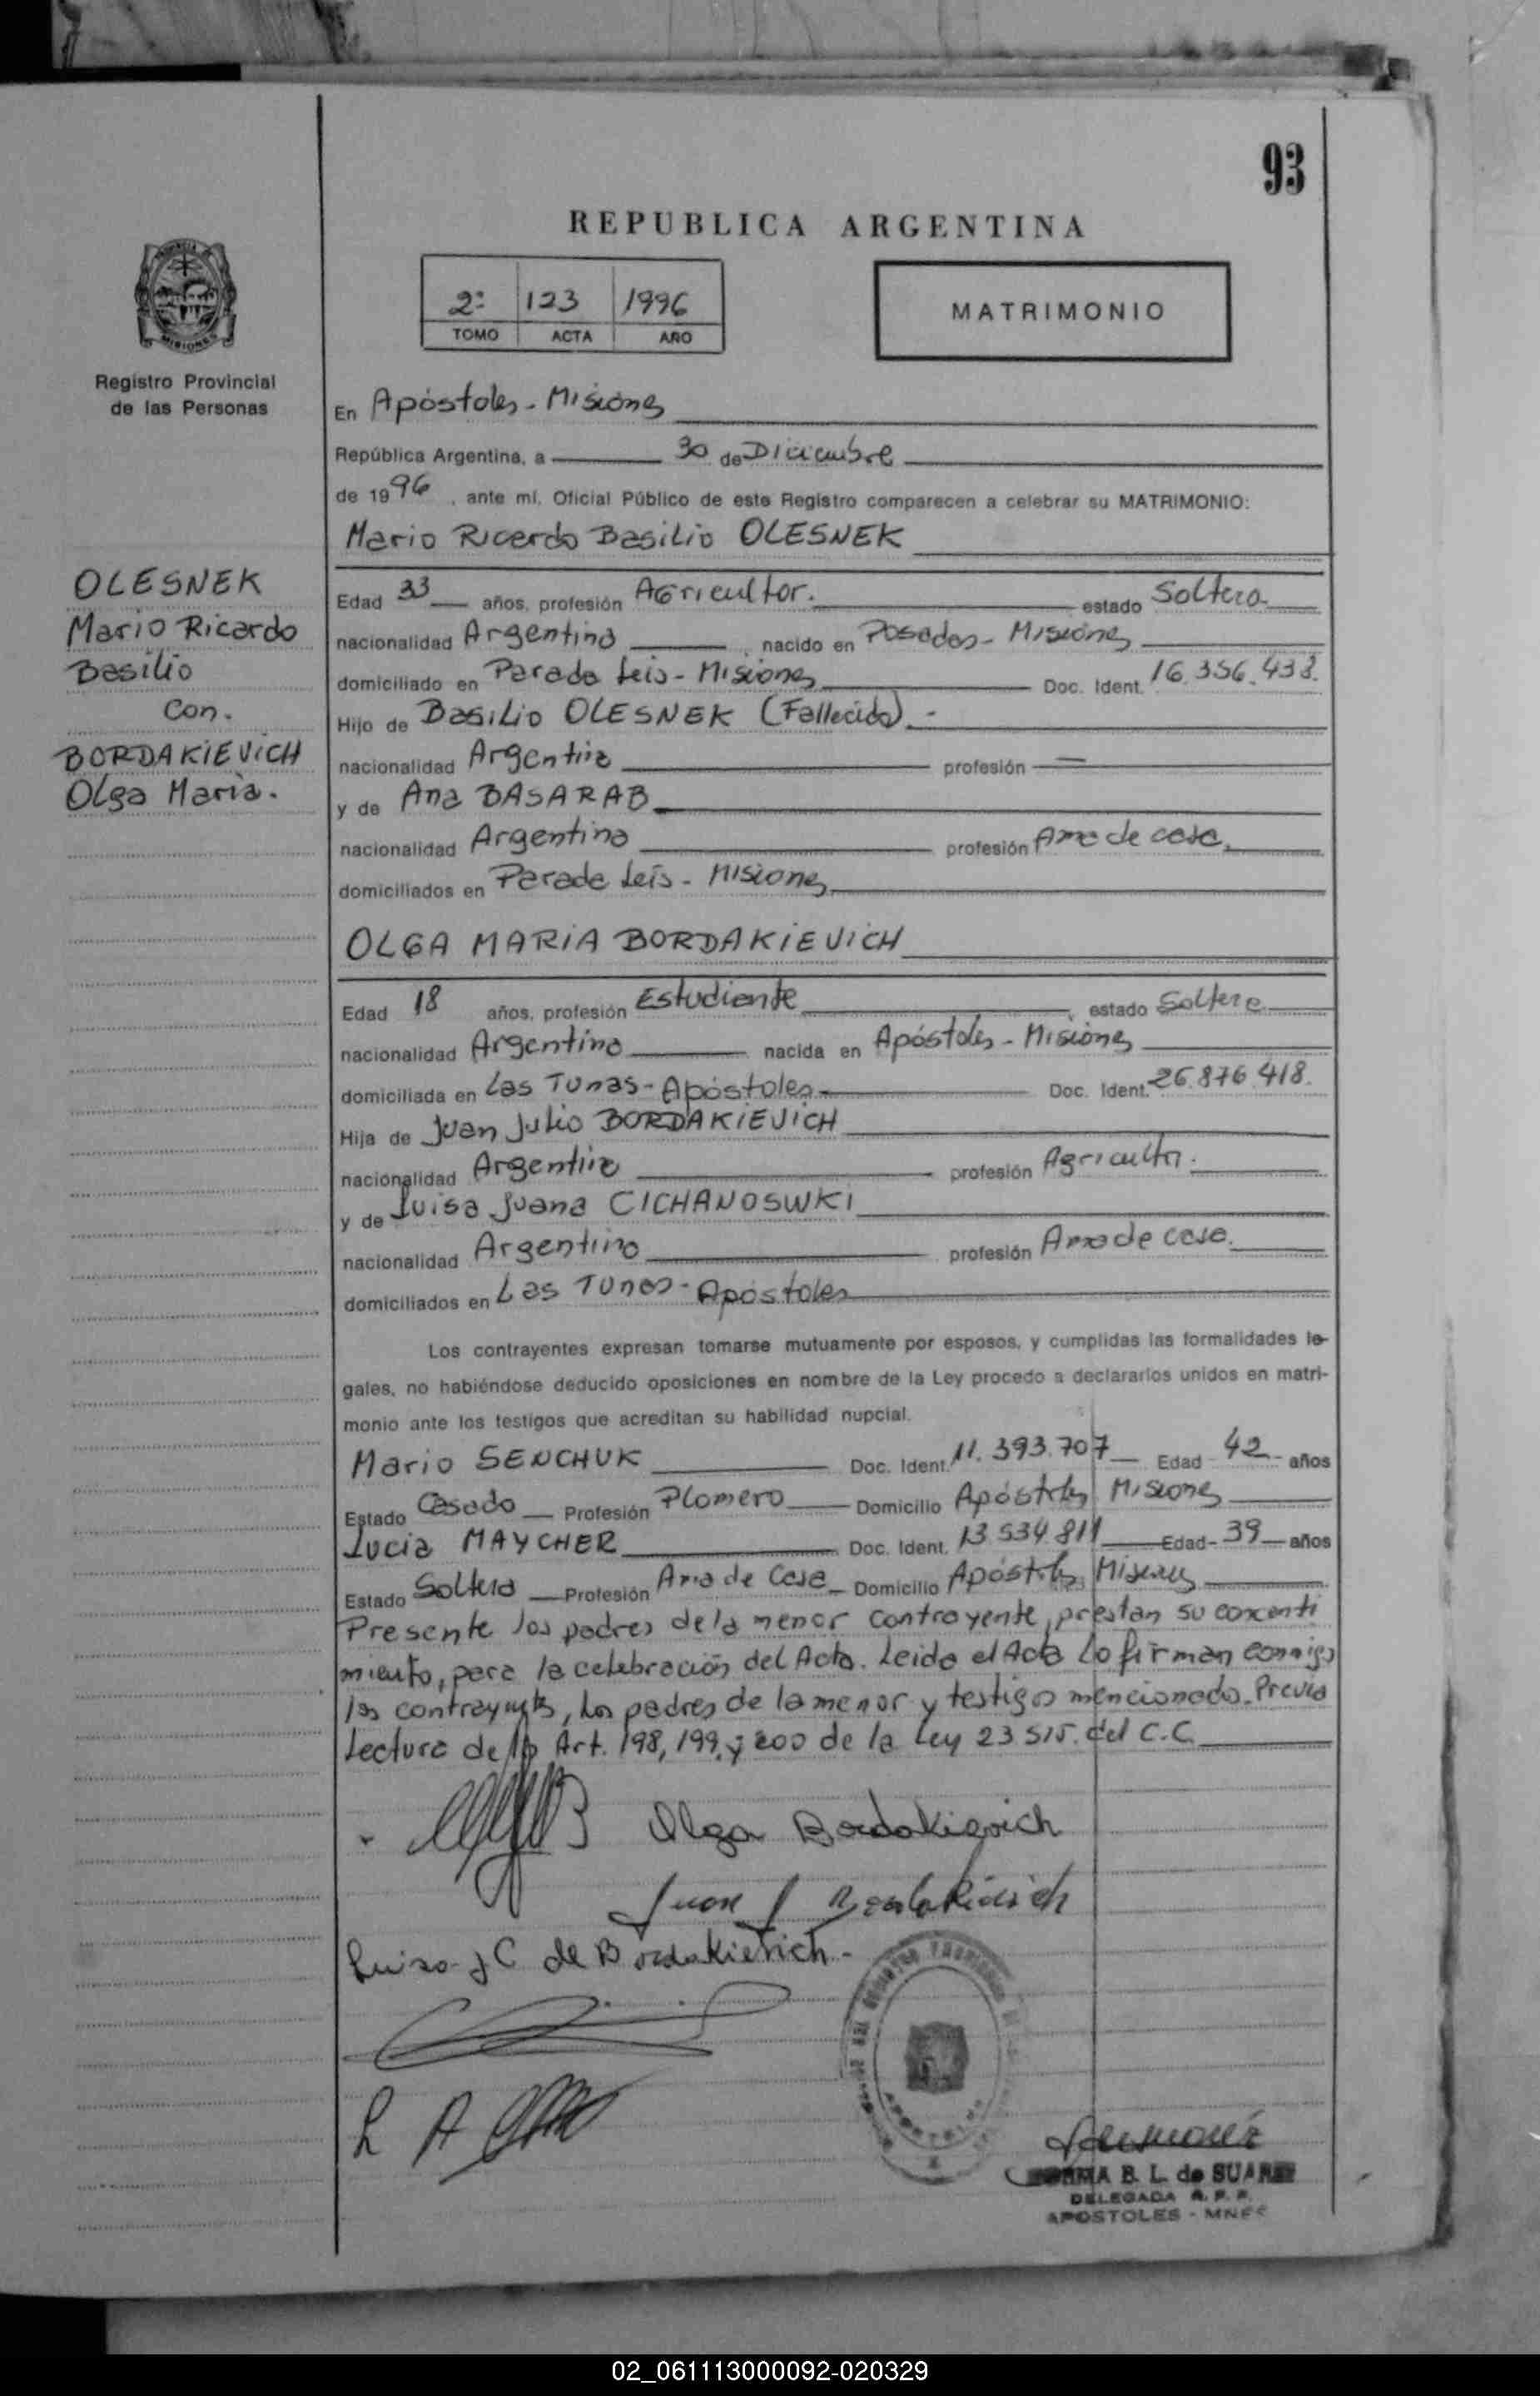 93
REPUBLICA ARGENTINA
2º 123 1996
TOMO ACTA AÑO
MATRIMONIO
PROVINCIA
MISIONES
Registro Provincial
de las Personas
En Apóstoles - Misiones
República Argentina, a 30 de Diciembre
de 1996, ante mí, Oficial Público de este Registro comparecen a celebrar su MATRIMONIO:
Mario Ricardo Basilio OLESNEK
OLESNEK
Mario Ricardo
Basilio
Con.
BORDAKIEVICH
Olga María.
Edad 33 años, profesión Agricultor. estado Soltero
nacionalidad Argentino, nacido en Posadas - Misiones
domiciliado en Parada Leis - Misiones Doc. Ident. 16.356.438.
Hijo de Basilio OLESNEK (Fallecido). -
nacionalidad Argentino profesión —
y de Ana BASARAB
nacionalidad Argentina profesión Ama de casa.
domiciliados en Parada Leis - Misiones
OLGA MARIA BORDAKIEVICH
Edad 18 años, profesión Estudiante, estado Soltera
nacionalidad Argentina nacida en Apóstoles - Misiones
domiciliada en Las Tunas - Apóstoles Doc. Ident. 26.876.418.
Hija de Juan Julio BORDAKIEVICH
nacionalidad Argentino profesión Agricultor.
y de Luisa Juana CICHANOSWKI
nacionalidad Argentina profesión Ama de casa.
domiciliados en Las Tunas - Apóstoles
Los contrayentes expresan tomarse mutuamente por esposos, y cumplidas las formalidades le-
gales, no habiéndose deducido oposiciones en nombre de la Ley procedo a declararlos unidos en matri-
monio ante los testigos que acreditan su habilidad nupcial.
Mario SENCHUK Doc. Ident. 11.393.707 Edad 42 años
Estado Casado Profesión Plomero Domicilio Apóstoles Misiones
Lucia MAYCHER Doc. Ident. 13.534.811 Edad - 39 años
Estado Soltera Profesión Ama de Casa Domicilio Apóstoles Misiones
Presente los padres de la menor contrayente, prestan su concenti
miento, para la celebración del Acto. Leida el Acta Lo firman conmigo
los contrayentes, los padres de la menor y testigos mencionado. Previa
Lectura de los Art. 198, 199, y 200 de la Ley 23 515. del C.C.
Olga Bordakievich
Juan J Bordakievich
Luisa J C de Bordakievich -
L A
B. L. de SUAREZ
DELEGADA R. P. P.
APOSTOLES - MNES
02_061113000092-020329